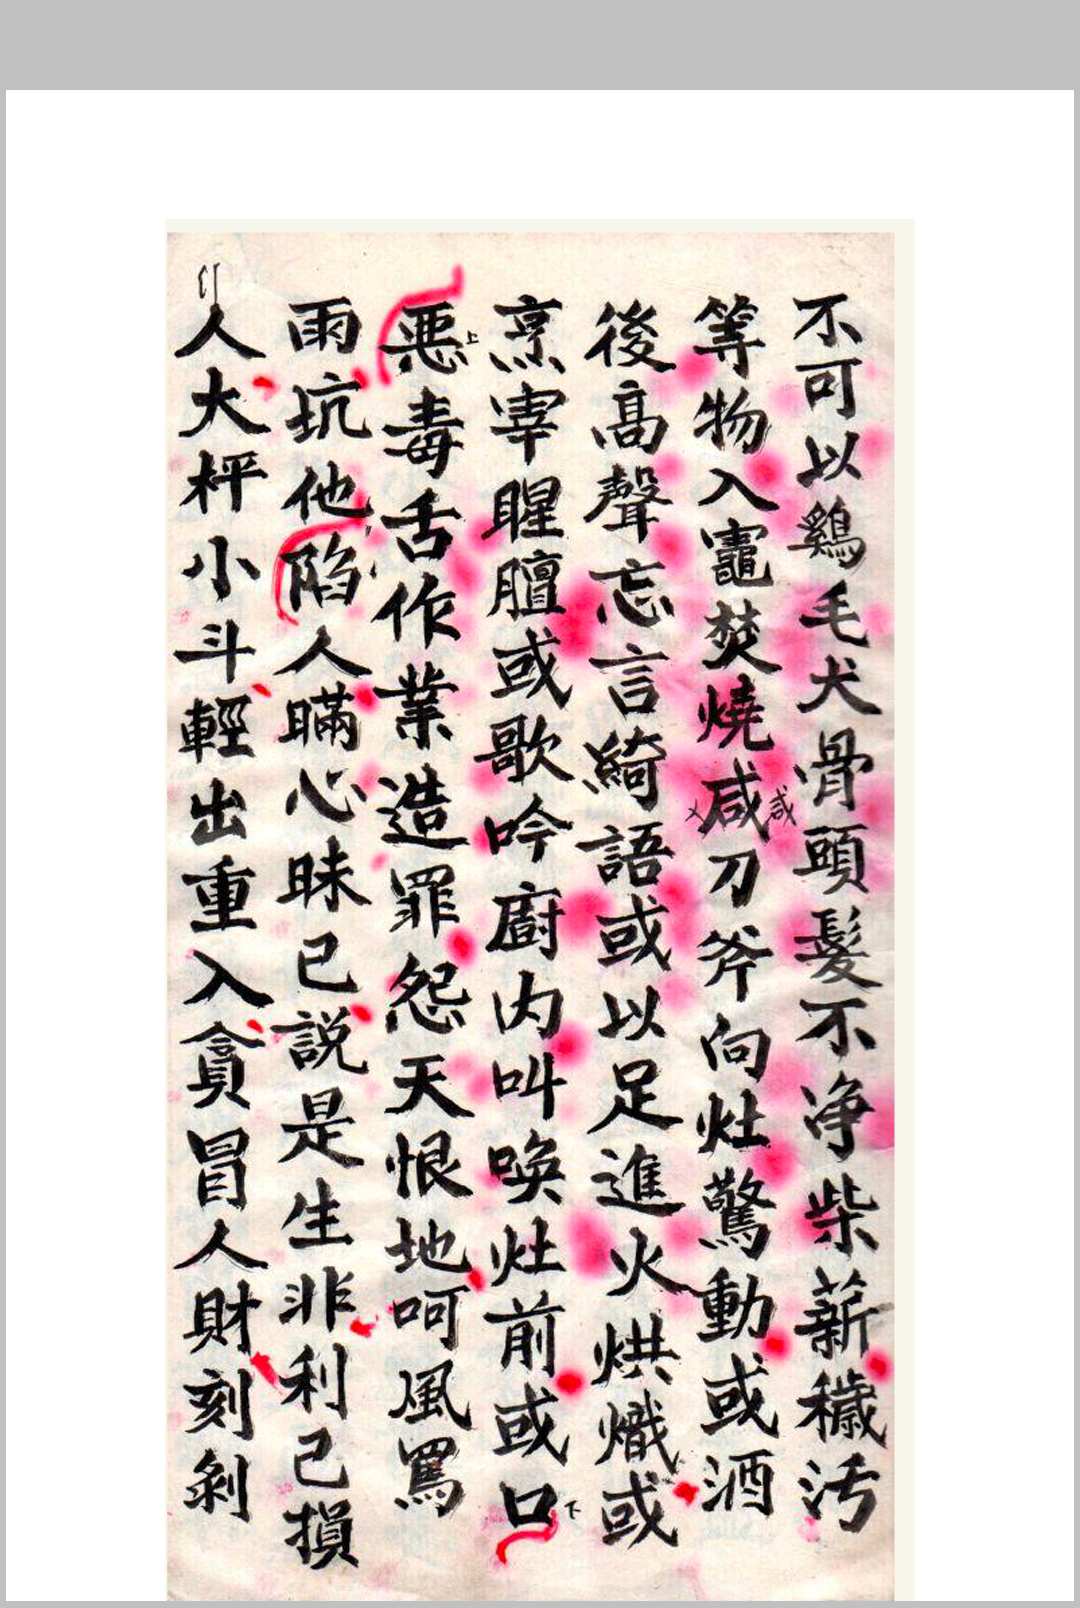 不可以鷄毛犬骨頭髮不净柴薪穢汚
等物入竈焚燒咸刀斧向灶驚動或酒
後高聲忘言綺語或以足進火烘熾或
烹宰腥膻或歌吟廚内叫喚灶前或口
惡毒舌作業造罪怨天恨地呵風罵
雨坑他陷人瞞心昧己説是生非利己損
人大枰小斗輕出重入貪冒人財刻剝